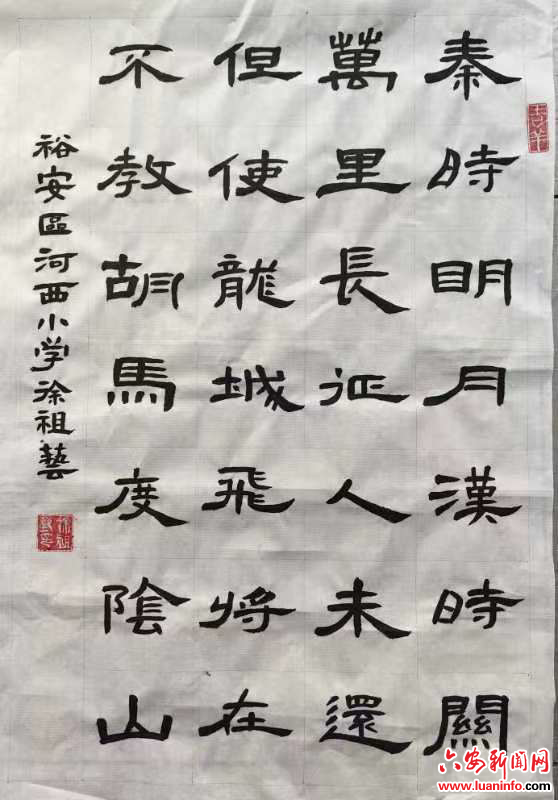 秦時明月漢時關
萬里長征人未還
但使龍城飛将在
不教胡馬度陰山
裕安區河西小学徐祖藝
吉羊
徐祖藝印
六安新闻网
www.luaninfo.com